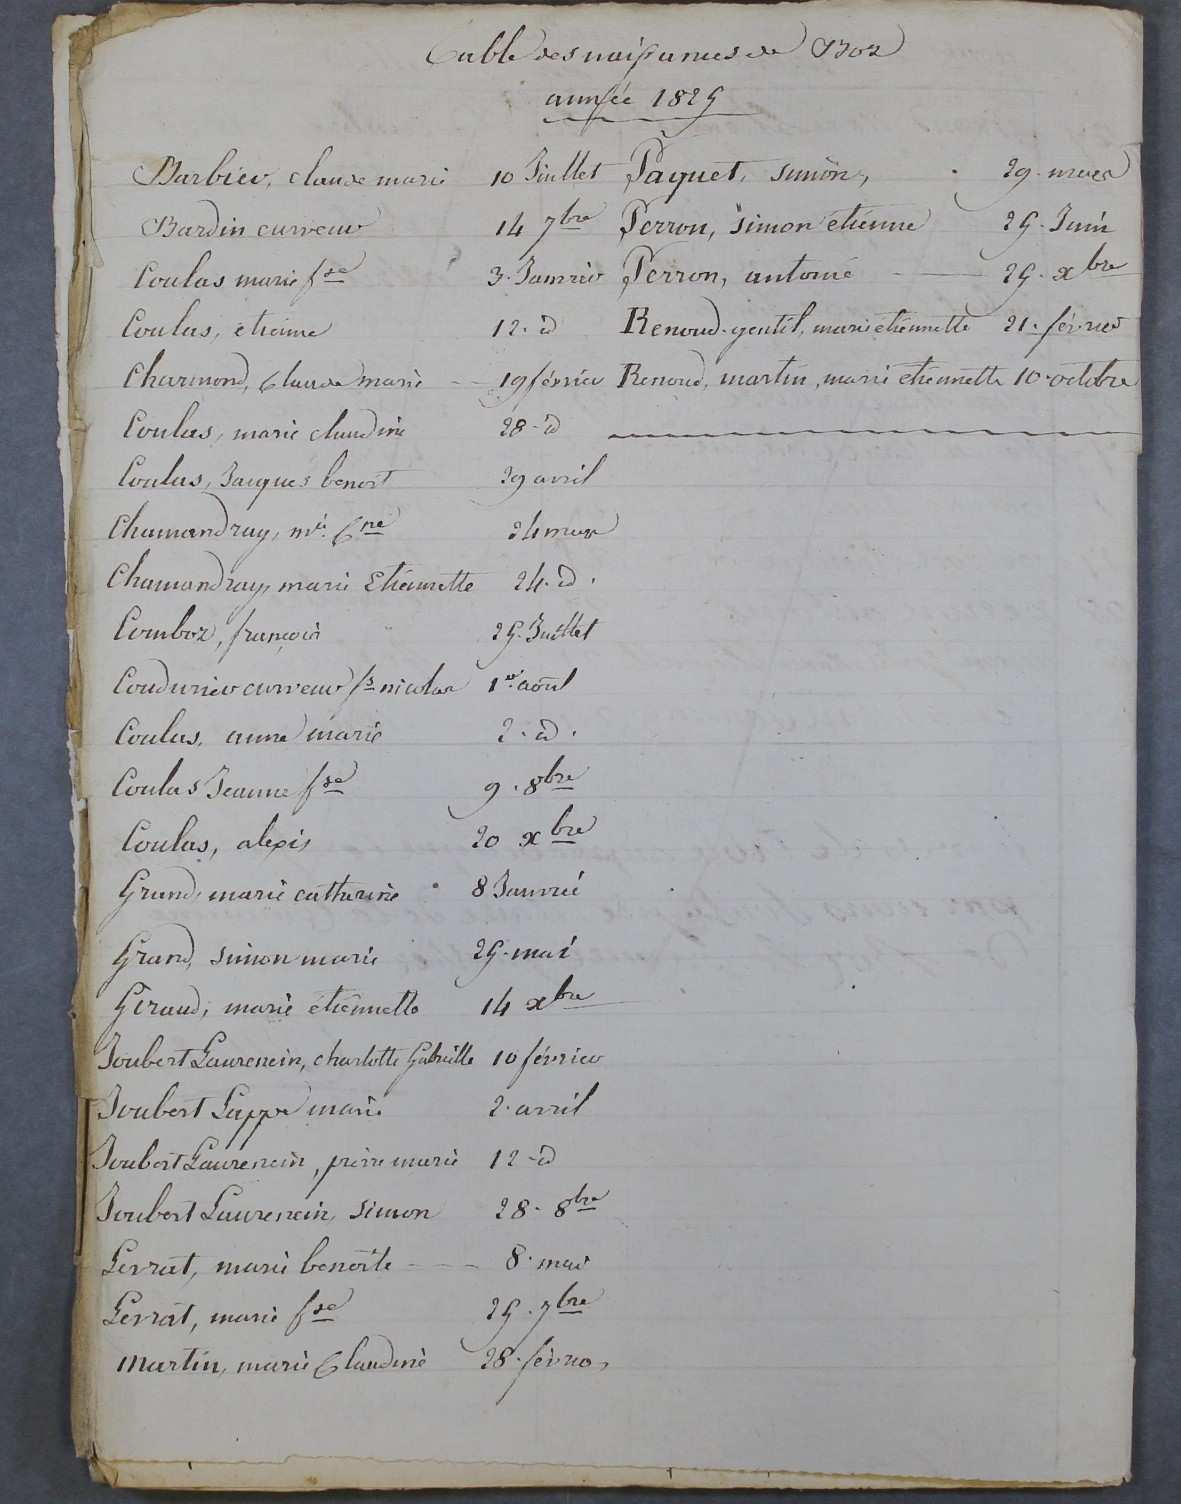 Table des naissances de Boz
année 1825
Barbier, claude marie 10 Juillet
Bardin curveur 14 7bre
Coulas marie fse 3. Janvier
Coulas, etienne 12. id
Charmond, Claude marie 19 février
Coulas, marie claudine 28 - id
Coulas, Jacques benoit 29 avril
Chamandray, mie Cne 24 mars
Chamandray, marie Etiennette 24. id.
Comboz, françois 25. Juillet
Coudurier curveur fs nicolas 1er. août
Coulas, anne marie 2. id.
Coulas Jeanne fse 9. 8bre
Coulas, alexis 20 xbre
Grand, marie catherine 8 Janvié
Grand, simon marie 25. mai
Géraud, marie etiennette 14 xbre
Joubert Laurencin, charlotte Gabrielle 10 février
Joubert Lappe marie 2. avril
Joubert Laurencin, pierre marie 12 - id
Joubert Laurencin, simon 28. 8bre
Gerrat, marie benoite 8. mai
Gerrat, marie fse 25. 7bre
Martin, marie Claudine 28. février
Paquet, simon, 29. mars
Perron, simon etienne 25. Juin
Perron, antoine 25. xbre
Renoud. gentil, marie etiennette 21. février
Renoud, martin, marie etiennette 10. octobre